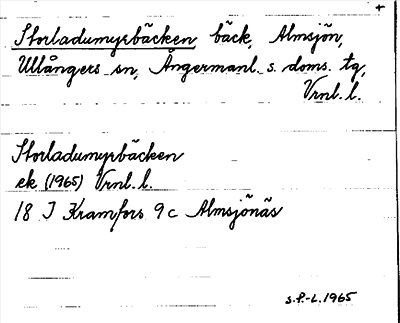 +
Storladumyrbäcken bäck, Almsjön,
Ullångers sn, Ångermanl. s. doms. tg,
Vrnl. l.
Storladumyrbäcken
ek (1965) Vrnl. l.
18 J Kramfors 9 c Almsjönäs
S.P.-L. 1965